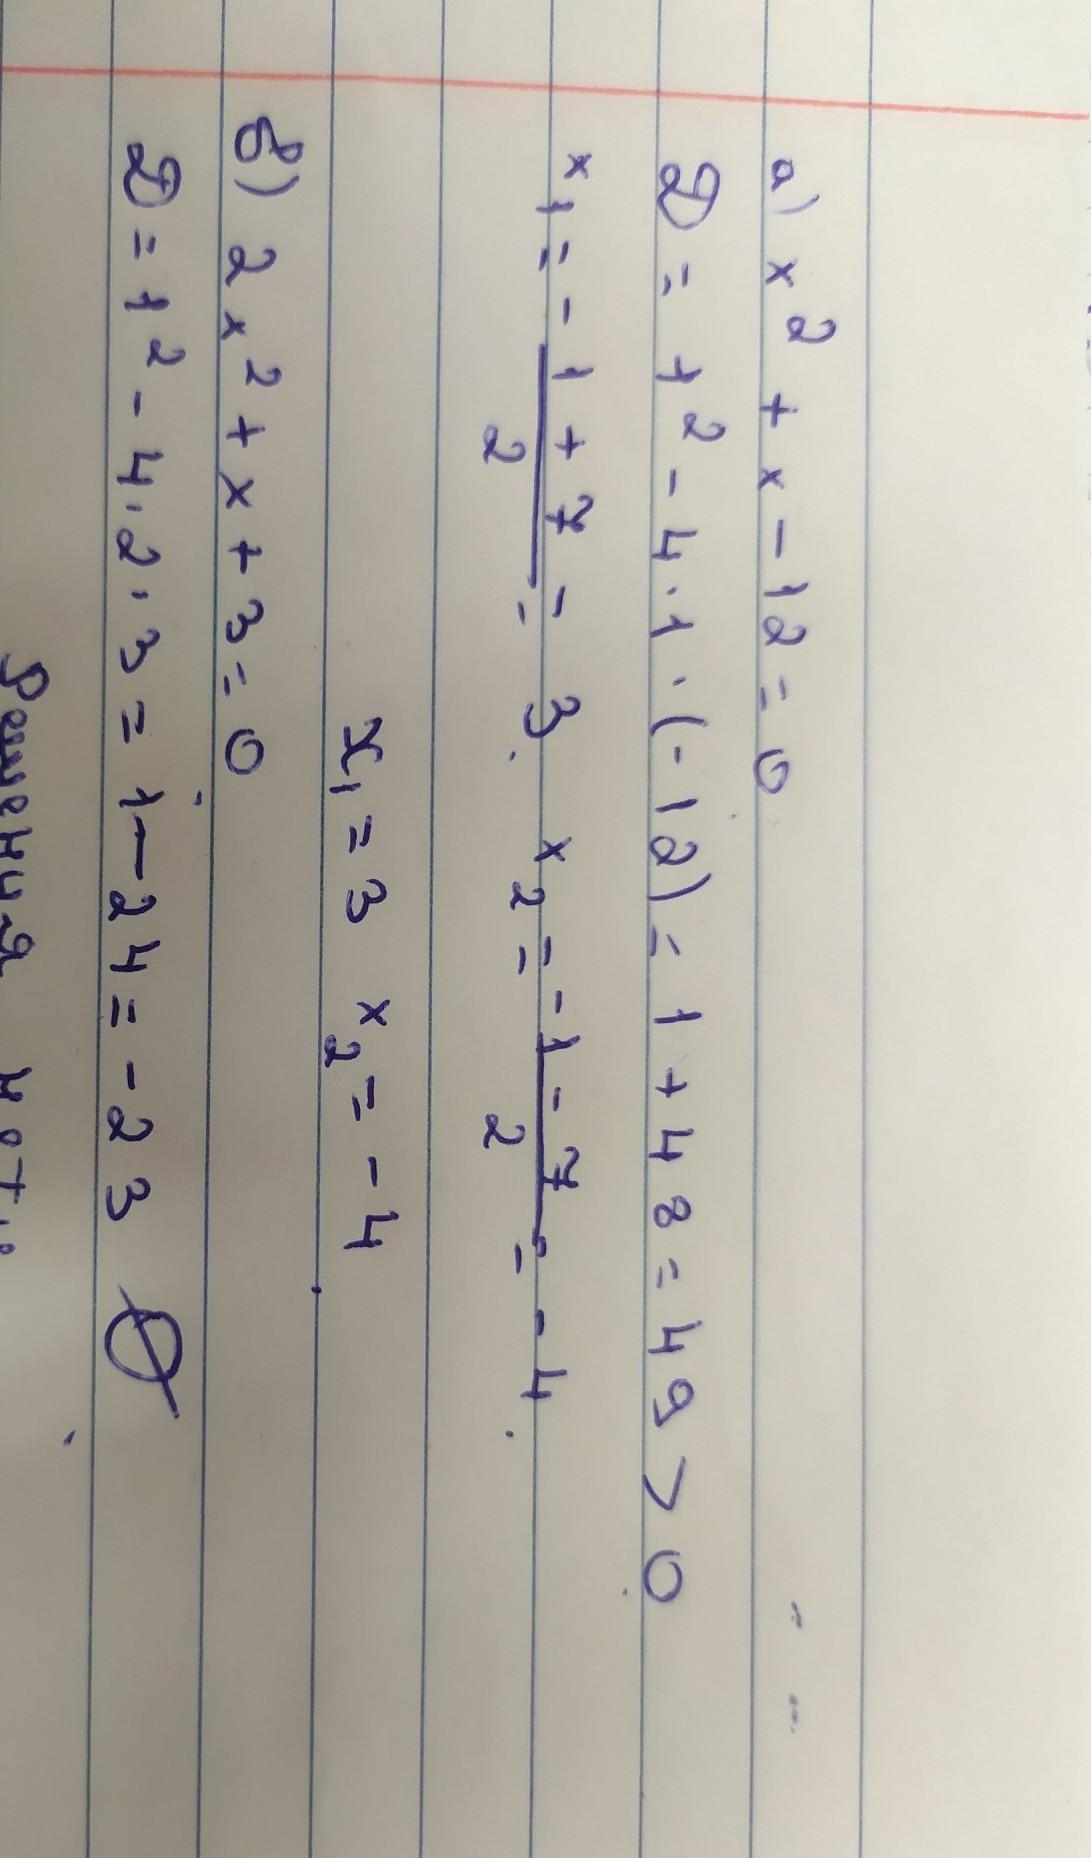 а) x² + x - 12 = 0
D = 1² - 4·1·(-12) = 1 + 48 = 49 > 0
x₁ = -1 + 7 / 2 = 3. x₂ = -1 - 7 / 2 = -4.
x₁ = 3 x₂ = -4
б) 2x² + x + 3 = 0
D = 1² - 4·2·3 = 1 - 24 = -23 ∅
Решения нет.